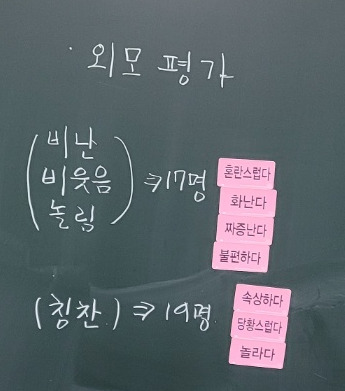 · 외모 평가
비난
비웃음
놀림
⇒ 17명
혼란스럽다
화난다
짜증난다
불편하다
(칭찬) ⇒ 19명
속상하다
당황스럽다
놀라다